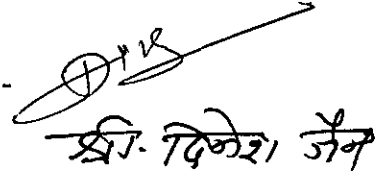 श्री. दिनेश जैन